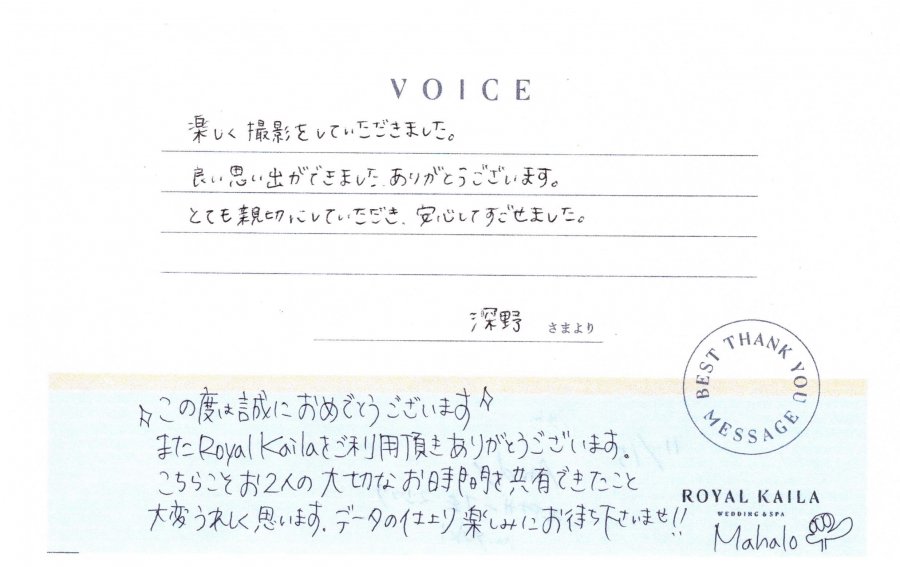 VOICE
楽しく撮影をしていただきました。
良い思い出ができました。ありがとうございます。
とても親切にしていただき、安心してすごせました。
深野 さまより
BEST THANK YOU MESSAGE
この度は誠におめでとうございます
またRoyal Kailaをご利用頂きありがとうございます。
こちらこそお2人の大切なお時間を共有できたこと
大変うれしく思います。データの仕上り楽しみにお待ち下さいませ!!
ROYAL KAILA
WEDDING & SPA
Mahalo